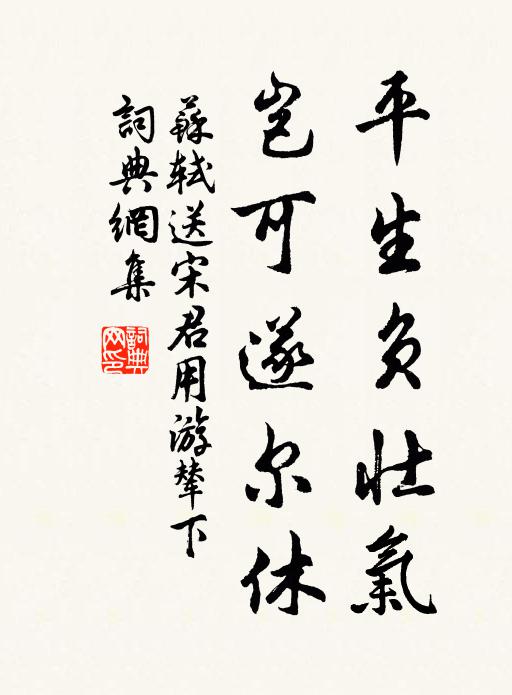 平生负壯氣
豈可遂尔休
蘇軾送宋君用游輦下
詞典網集
詞典網印